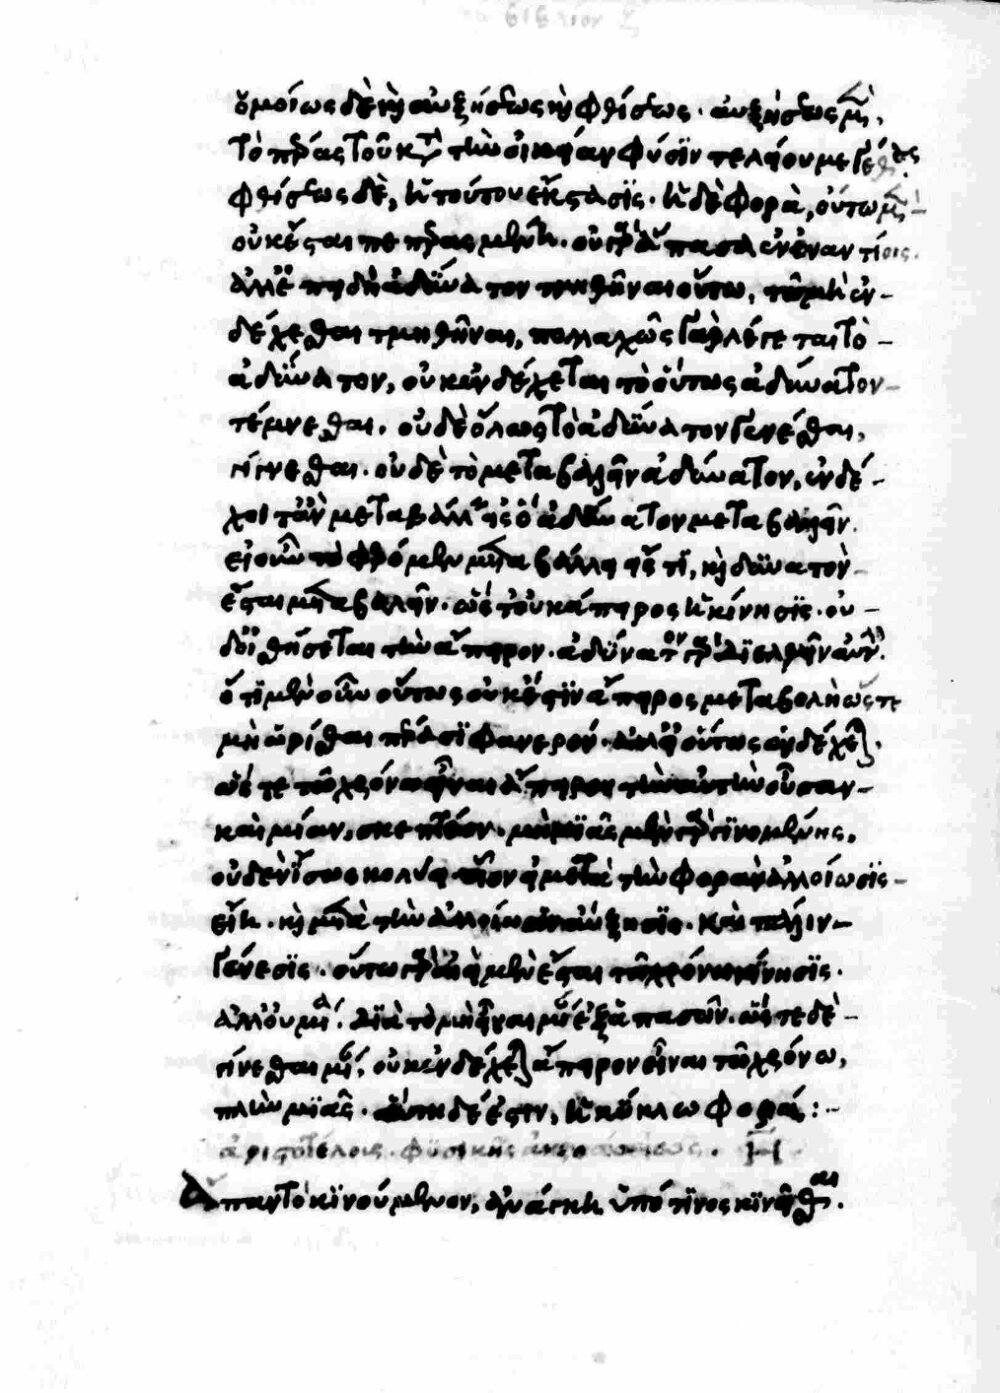 ὁμοίως δὲ καὶ αὐξήσεως καὶ φθίσεως. αὐξήσεως μὲν,
τὸ πέρας τοῦ κατὰ τὴν οἰκείαν φύσιν τελείου μεγέθους.
φθίσεως δὲ, ἡ τούτου ἔκστασις. ἡ δὲ φορὰ, οὕτω μὲν
οὐκ ἔσται πεπερασμένη. οὐ γὰρ ἅπασα ἐν ἐναντίοις.
ἀλλ' ἐπειδὴ ἀδύνατον τμηθῆναι οὕτω, τῷ μὴ ἐν-
δέχεσθαι τμηθῆναι, πολλαχῶς γὰρ λέγεται τὸ
ἀδύνατον, οὐκ ἐνδέχεται τὸ οὕτως ἀδύνατον
τέμνεσθαι. οὐδὲ ὅλως τὸ ἀδύνατον γενέσθαι,
γίνεσθαι. οὐδὲ τὸ μεταβαλεῖν ἀδύνατον, ἐνδέ-
χοιτ' ἂν μεταβάλλειν εἰς ὃ ἀδύνατον μεταβαλεῖν.
εἰ οὖν τὸ φερόμενον μεταβάλλει εἴς τι, καὶ δυνατὸν
ἔσται μεταβαλεῖν. ὥστ' οὐκ ἄπειρος ἡ κίνησις. οὐ
δ' οἰσθήσεται τὴν ἄπειρον. ἀδύνατον γὰρ διελθεῖν αὐτήν.
ὅτι μὲν οὖν οὕτως οὐκ ἔστιν ἄπειρος μεταβολὴ ὥστε
μὴ ὡρίσθαι πέρασι φανερόν. ἀλλ' εἰ οὕτως ἐνδέχεται.
ὥστε τῷ χρόνῳ εἶναι ἄπειρον τὴν αὐτὴν οὖσαν
καὶ μίαν, σκεπτέον. μὴ μιᾶς μὲν γὰρ γινομένης,
οὐδὲν ἴσως κωλύει οἷον εἰ μετὰ τὴν φορὰν ἀλλοίωσις
εἴη. καὶ μετὰ τὴν ἀλλοίωσιν αὔξησις. καὶ πάλιν
γένεσις. οὕτω γὰρ ἀεὶ μὲν ἔσται τῷ χρόνῳ κίνησις.
ἀλλ' οὐ μία. διὰ τὸ μὴ εἶναι μίαν ἐξ ἁπασῶν. ὥστε δὲ
γίνεσθαι μίαν, οὐκ ἐνδέχεται ἄπειρον εἶναι τῷ χρόνῳ,
πλὴν μιᾶς. αὕτη δέ ἐστιν, ἡ κύκλῳ φορά :-
ἀριστοτέλους φυσικῆς ἀκροάσεως. Η
Ἅπαν τὸ κινούμενον, ἀνάγκη ὑπό τινος κινεῖσθαι.